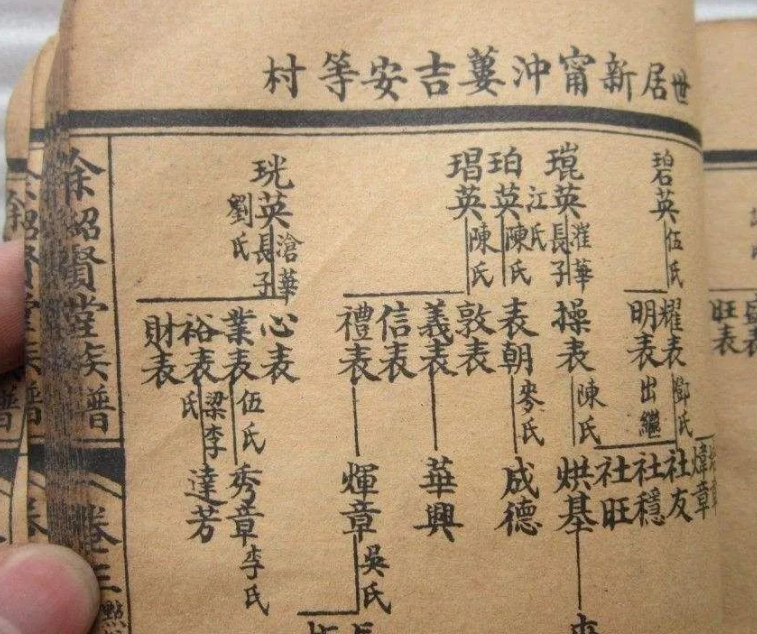 世居新甯沖蔞吉安等村
碧英伍氏
琨英濯華長子江氏
珀英陳氏
琩英陳氏
珖英滄華長子劉氏
耀表鄧氏
明表出繼
操表陳氏
表朝麥氏
敦表
義表
信表
禮表
心表
業表伍氏
裕表梁李氏
財表
煒章
社友
社穩
社旺
烘基
成德
華興
煇章吳氏
秀章李氏
達芳
余紹賢堂族譜
卷三
旺表